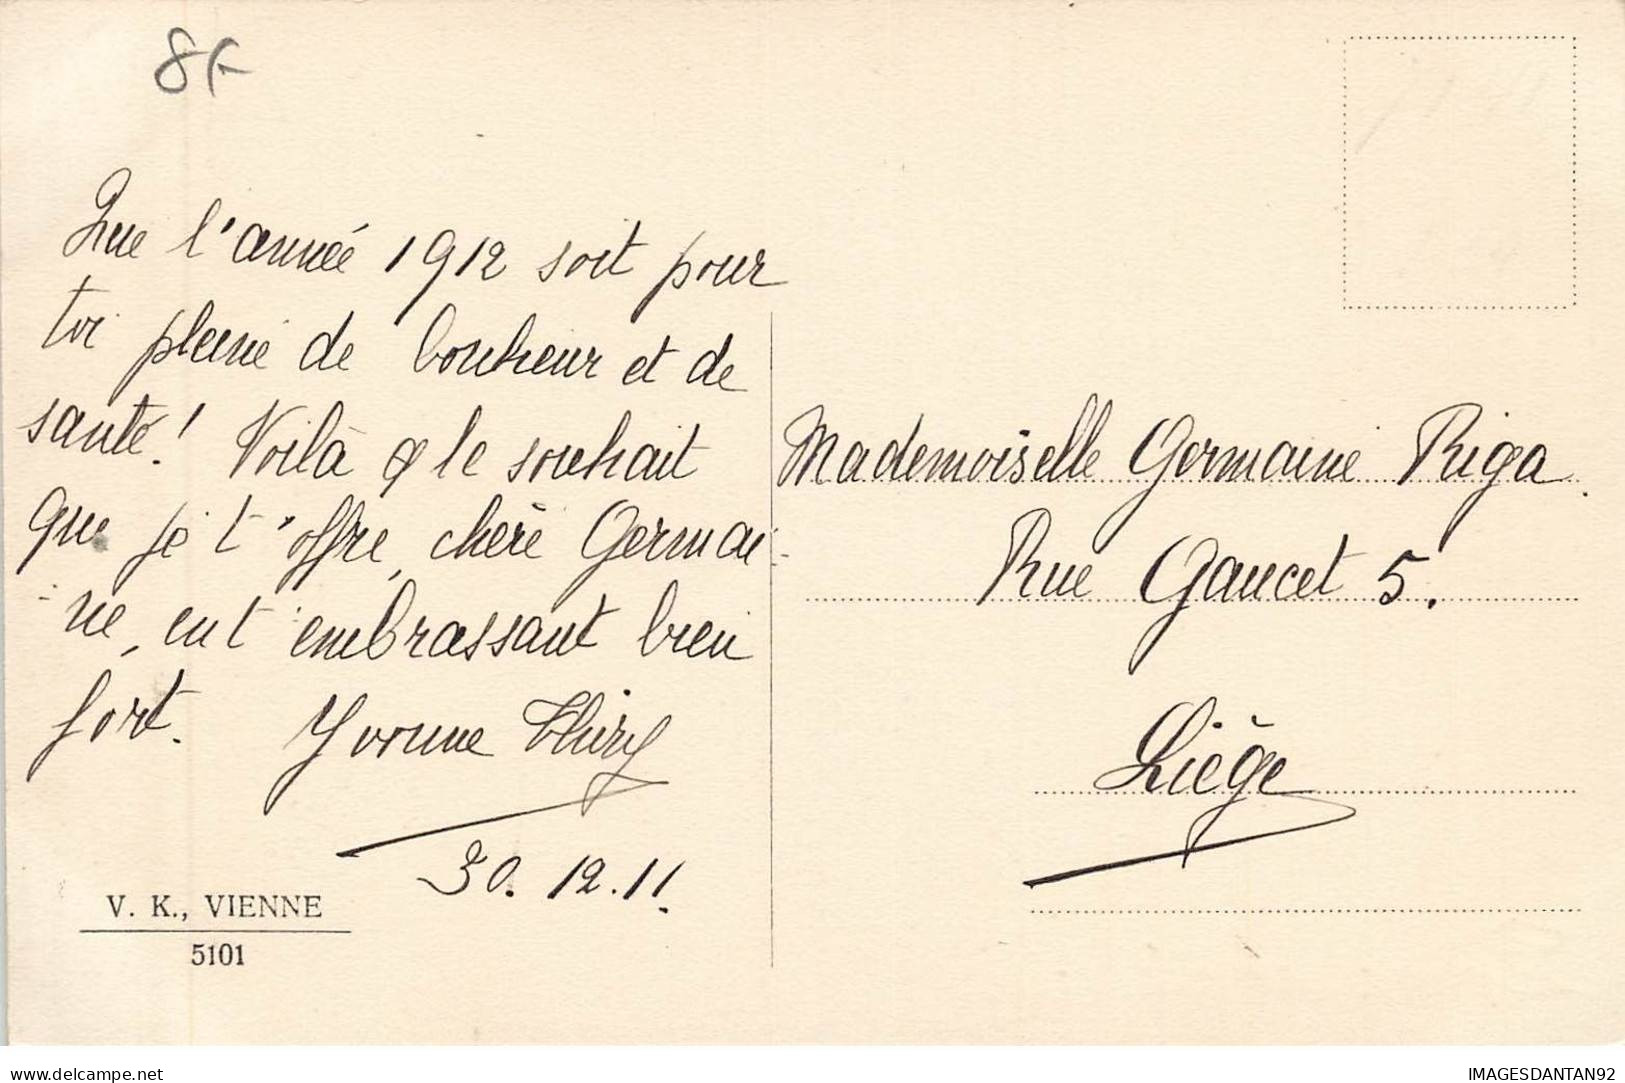 8f
Que l'année 1912 soit pour
toi pleine de bonheur et de
santé! Voilà le souhait
que je t'offre, chère Germai-
ne, en t'embrassant bien
fort. Yvonne Thiry
30.12.11.
V. K., VIENNE
5101
Mademoiselle Germaine Riga.
Rue Gaucet 5.
Liège
delcampe.net
IMAGESDANTAN92